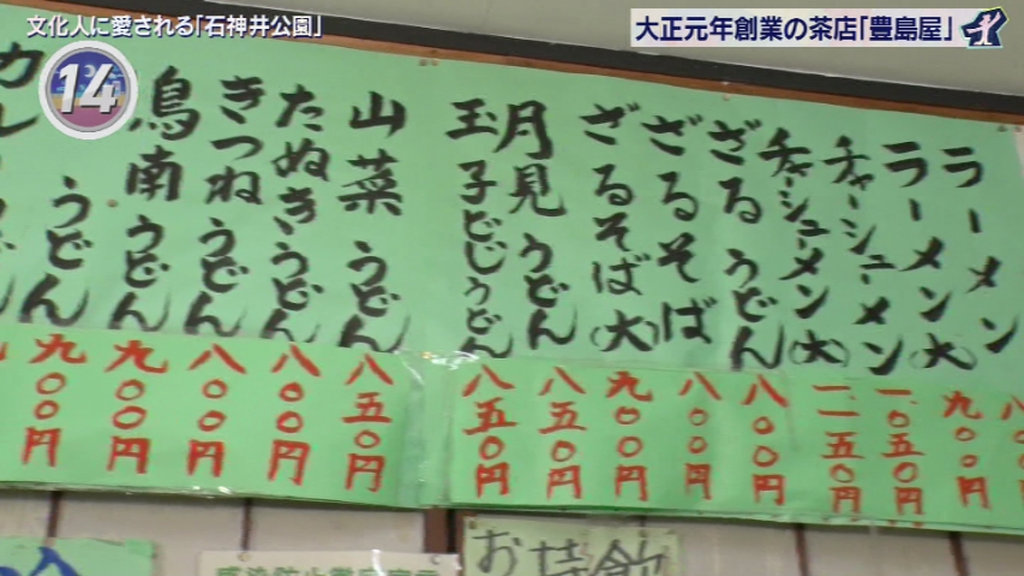 文化人に愛される「石神井公園」
大正元年創業の茶店「豊島屋」
14
ラーメン 八
ラーメン(大) 九〇〇円
チャーシューメン 一、〇五〇円
チャーシューメン(大) 一、一五〇円
ざるうどん 八〇〇円
ざるそば 八〇〇円
ざるそば(大) 九〇〇円
月見うどん 八五〇円
玉子とじうどん 八五〇円
山菜うどん 八五〇円
たぬきうどん 八〇〇円
きつねうどん 八〇〇円
鳥南うどん 九〇〇円
うどん 九〇〇円
カレー